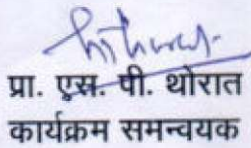 प्रा. एस. पी. थोरात
कार्यक्रम समन्वयक